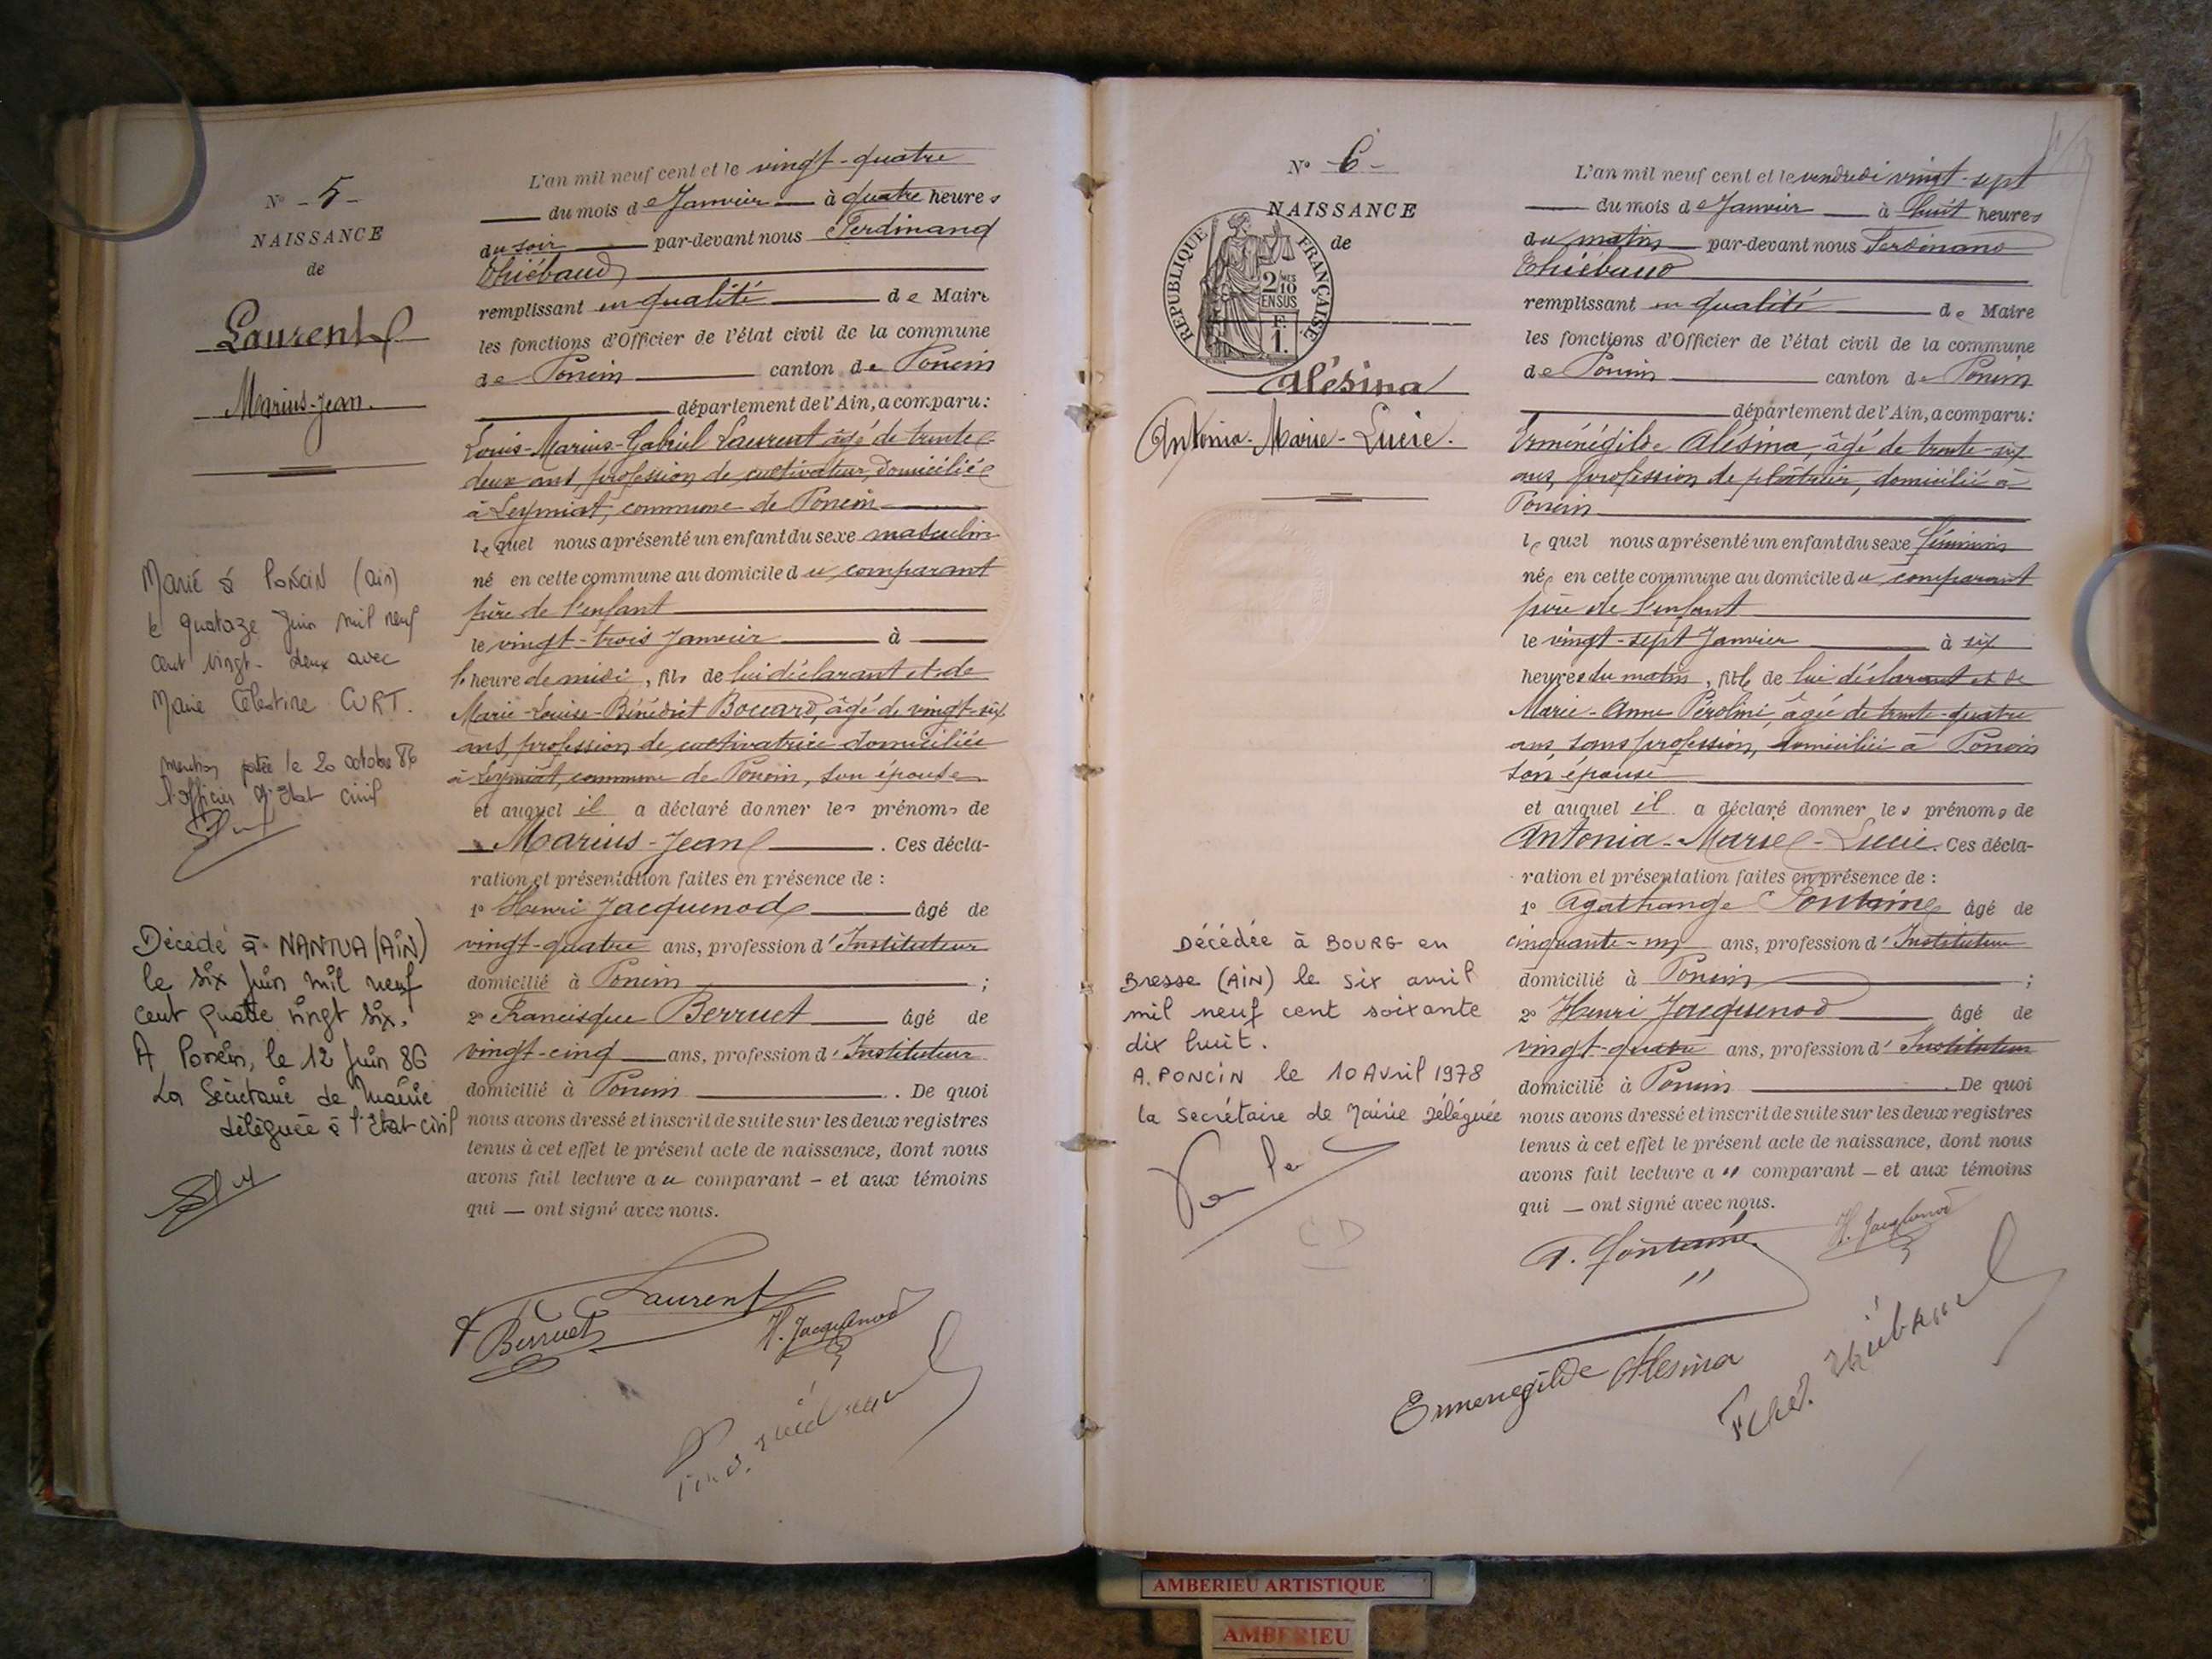 N° - 5 -
NAISSANCE
de
Laurent
Marius-Jean.
Marié à PONCIN (Ain)
le quatoze Juin mil neuf
cent vingt-deux avec
Marie Célestine CURT.
mention portée le 20 octobre 86
l'officier d'Etat civil
Décédé à NANTUA (AIN)
le six juin mil neuf
cent quatre vingt six.
A Poncin, le 12 Juin 86
La Secrétaire de Mairie
déléguée à l'Etat civil
L'an mil neuf cent et le vingt-quatre
du mois de Janvier à quatre heures
du soir par-devant nous Ferdinand
Thiébaud
remplissant en qualité de Maire
les fonctions d'Officier de l'état civil de la commune
de Poncin canton de Poncin
département de l'Ain, a comparu:
Louis-Marius-Gabriel Laurent âgé de trente-
deux ans, profession de cultivateur, domicilié
à Leymiat, commune de Poncin
lequel nous a présenté un enfant du sexe masculin
né en cette commune au domicile du comparant
père de l'enfant
le vingt-trois Janvier à
l'heure de midi, fils de lui déclarant et de
Marie-Louise-Bénédict Bouard, âgé de vingt-six
ans, profession de cultivatrice domiciliée
à Leymiat, commune de Poncin, son épouse
et auquel il a déclaré donner les prénoms de
Marius-Jean. Ces décla-
ration et présentation faites en présence de :
1° Henri Jacquenod âgé de
vingt-quatre ans, profession d'Instituteur
domicilié à Poncin ;
2° Francisque Berruet âgé de
vingt-cinq ans, profession d'Instituteur
domicilié à Poncin. De quoi
nous avons dressé et inscrit de suite sur les deux registres
tenus à cet effet le présent acte de naissance, dont nous
avons fait lecture au comparant - et aux témoins
qui — ont signé avec nous.
Laurent
Berruet
H. Jacquenod
N° - 6 -
NAISSANCE
de
REPUBLIQUE FRANÇAISE
2/10 MES
EN SUS
F.
1.
Alésina
Antonia-Marie-Lucie.
Décédée à BOURG en
Bresse (AIN) le six avril
mil neuf cent soixante
dix huit.
A. PONCIN le 10 Avril 1978
la secrétaire de Mairie Déléguée
CD
L'an mil neuf cent et le vendredi vingt-sept
du mois de Janvier à huit heures
du matin par-devant nous Ferdinand
Thiébaud
remplissant en qualité de Maire
les fonctions d'Officier de l'état civil de la commune
de Poncin canton de Poncin
département de l'Ain, a comparu:
Erménégilde Alésina, âgé de trente-six
ans, profession de plâtrier, domicilié à
Poncin
lequel nous a présenté un enfant du sexe féminin
née en cette commune au domicile du comparant
père de l'enfant
le vingt-sept Janvier à six
heures du matin, fille de lui déclarant et de
Marie-Anne Pérolini, âgée de trente-quatre
ans sans profession, domiciliée à Poncin
son épouse
et auquel il a déclaré donner les prénoms de
Antonia-Marie-Lucie. Ces décla-
ration et présentation faites en présence de :
1° Agathange Fontaine âgé de
cinquante-un ans, profession d'Instituteur
domicilié à Poncin ;
2° Henri Jacquenod âgé de
vingt-quatre ans, profession d'Instituteur
domicilié à Poncin. De quoi
nous avons dressé et inscrit de suite sur les deux registres
tenus à cet effet le présent acte de naissance, dont nous
avons fait lecture au comparant — et aux témoins
qui — ont signé avec nous.
A. Fontaine
H. Jacquenod
Ermenegilde Alesina
Thiébaud
AMBERIEU ARTISTIQUE
AMBERIEU